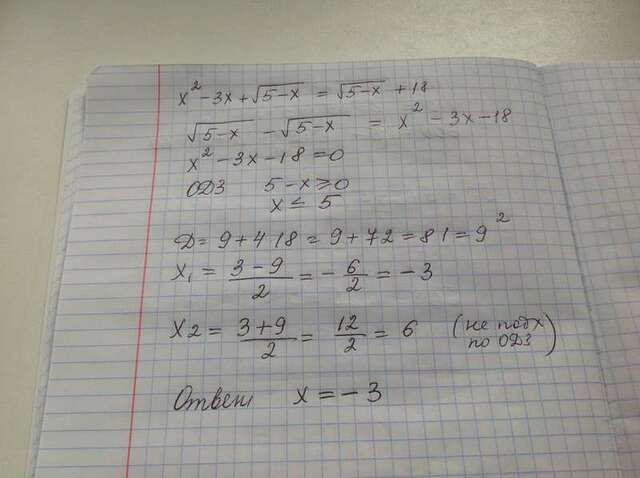 x² - 3x + √5-x = √5-x + 18
√5-x - √5-x = x² - 3x - 18
x² - 3x - 18 = 0
ОДЗ 5 - x ≥ 0
x ≤ 5
Д = 9 + 4·18 = 9 + 72 = 81 = 9²
x₁ = (3 - 9)/2 = - 6/2 = - 3
x2 = (3 + 9)/2 = 12/2 = 6 (не подх по ОДЗ)
Ответ x = - 3